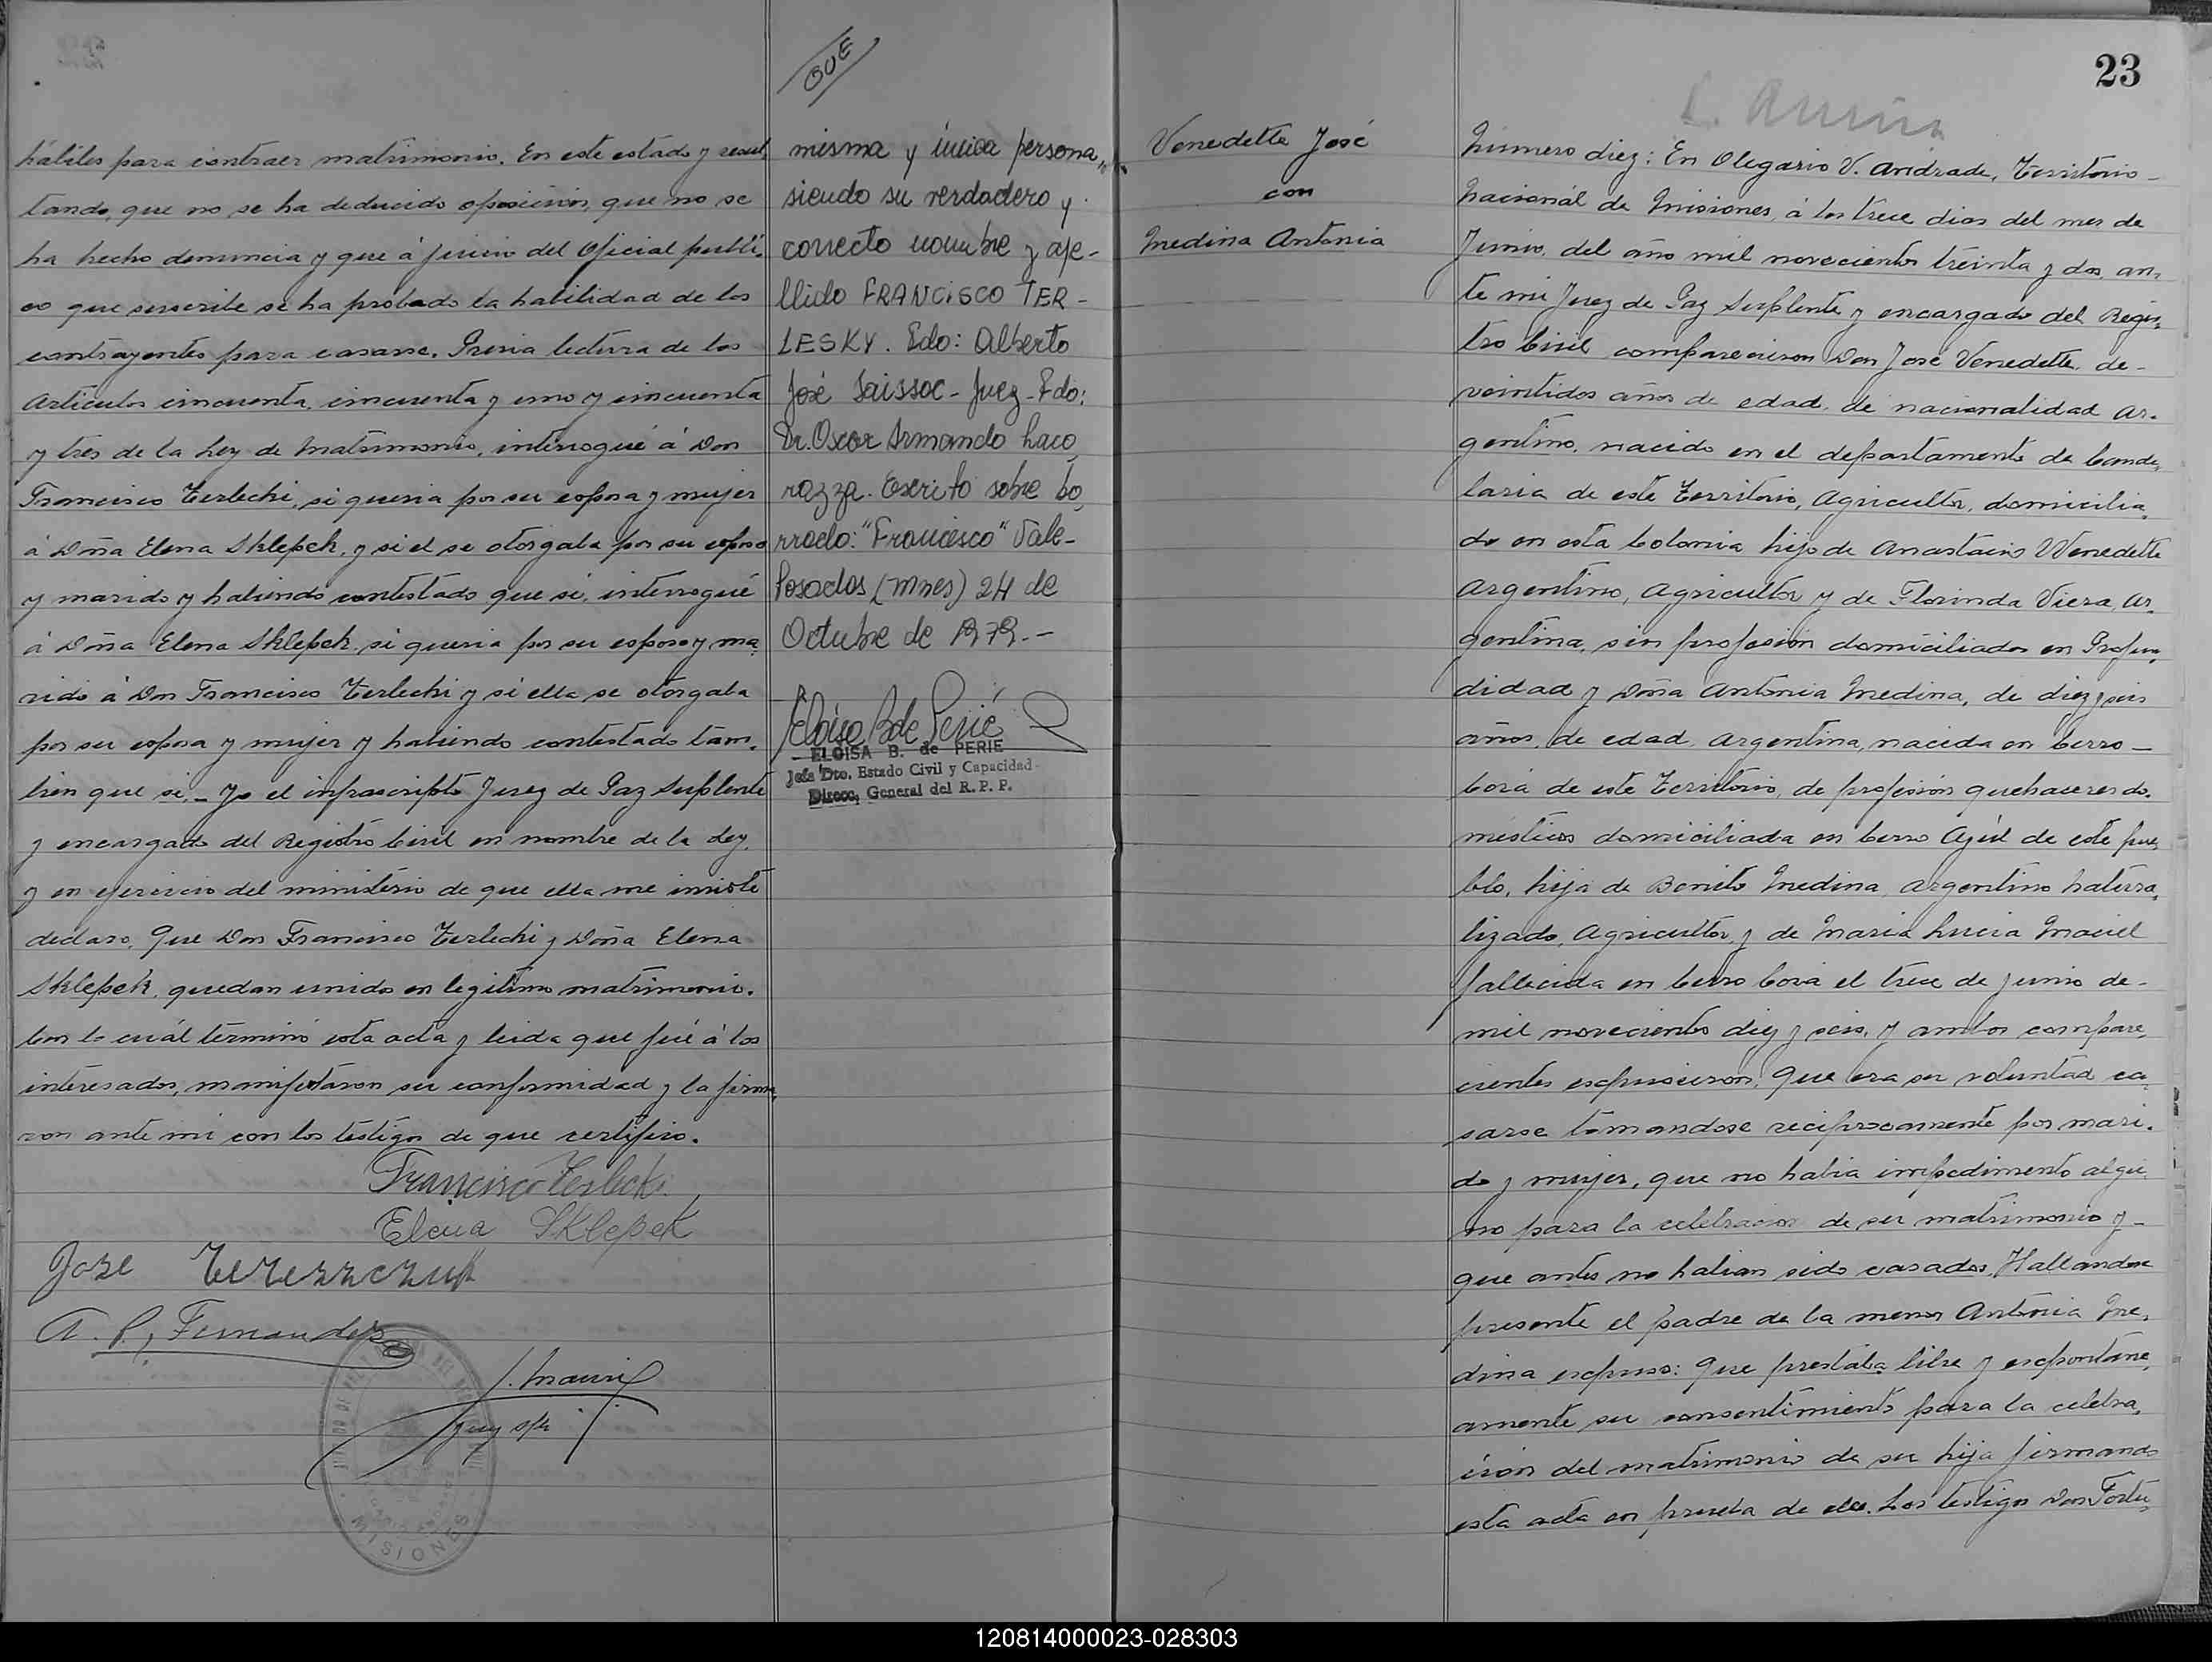 hábiles para contraer matrimonio. En este estado y resul,
tando, que no se ha deducido oposicion, que no se
ha hecho denuncia y que á juicio del Oficial públi,
co que suscribe se ha probado la habilidad de los
contrayentes para casarse. Previa lectura de los
Articulos cincuenta, cincuenta y uno y cincuenta
y tres de la Ley de Matrimonio, interrogué á Don
Francisco Terlecki, si queria por su esposa y mujer
á Doña Elena Sklepek, y si el se otorgaba por su esposo
y marido y habiendo contestado que si, interrogué
á Doña Elena Sklepek si queria por su esposo y ma,
rido á Don Francisco Terlecki y si ella se otorgaba
por su esposa y mujer y habiendo contestado tam,
bien que si,_ Yo el infrascripto Juez de Paz Suplente
y encargado del Registro Civil en nombre de la Ley,
y en ejercicio del ministerio de que ella me inviste
declaro, Que Don Francisco Terlecki y Doña Elena
Sklepek, quedan unido en legitimo matrimonio.
Con lo cuál terminó esta acta y leida que fué á los
interesados, manifestaron su conformidad y la firma,
ron ante mi con los testigos de que certifico.
Francisco Terlecki
Elena Sklepek
José Tereszczuk
A. P. Fernandez
MISIONES
QUE
misma y única persona,
siendo su verdadero y
correcto nombre y ape-
llido FRANCISCO TER-
LESKY. Fdo: Alberto
José Saissac - Juez - Fdo:
Dr. Oscar Armando Laco
razza. Escrito sobre bo,
rrado: "Francisco" Vale-
Posadas (Mnes) 24 de
Octubre de 1979.--
Eloisa B de Perié
ELOISA B. de PERIE
Jefa Dto. Estado Civil y Capacidad
Direcc, General del R. P. P.
23
Venedette José
con
Medina Antonia
Número diez: En Olegario V. Andrade, Territorio_
Nacionál de Misiones, á los trece dias del mes de
Junio, del año mil novecientos treinta y dos, an,
te mi Juez de Paz Suplente y encargado del Regis,
tro Civil comparecieron Don José Venedette, de_
veintidos años de edad, de nacionalidad Ar,
gentino, nacido en el departamento de Cande,
laria de este Territorio, Agricultor, domicilia,
do en esta Colonia hijo de Anastacio Venedette
Argentino, Agricultor y de Florinda Viera, Ar,
gentina, sin profesión domiciliados en Profun,
didad y Doña Antonia Medina, de diez y seis
años, de edad, Argentina, nacida en Cerro_
Corá de este Territorio, de profesión quehaceres do,
mésticos domiciliada en Cerro Azúl de este pue,
blo, hija de Benito Medina, Argentino natura,
lizado, Agricultor, y de Maria Lucia Maciel
fallecida en Cerro Corá el trece de Junio de_
mil novecientos diez y seis, y ambos compare,
cientes expusieron, Que era su voluntad ca,
sarse tomandose reciprocamente por mari,
do y mujer, que no habia impedimento algu,
no para la celebracion de su matrimonio y_
que antes no habian sido casados, Hallandose
presente el padre de la menor Antonia Me,
dina expuso: Que prestába libre y espontane,
amente su consentimiento para la celebra,
ción del matrimonio de su hija firmando
esta acta en prueba de ello. Los testigos Don Fortu,
120814000023-028303